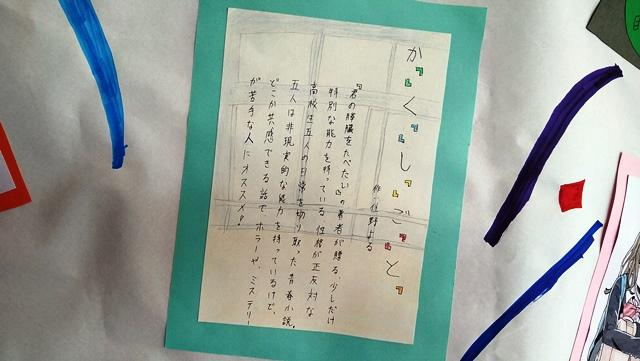 か「」く「」し「」ご「」と「
作 住野よる
『君の膵臓をたべたい』の著者が贈る、少しだけ
特別な能力を持っている、性格が正反対な
高校生五人の日常を切り取った青春小説。
五人は非現実的な能力を持っているけど、
どこか共感できる話で ホラーや、ミステリー
が苦手な人にオススメ?